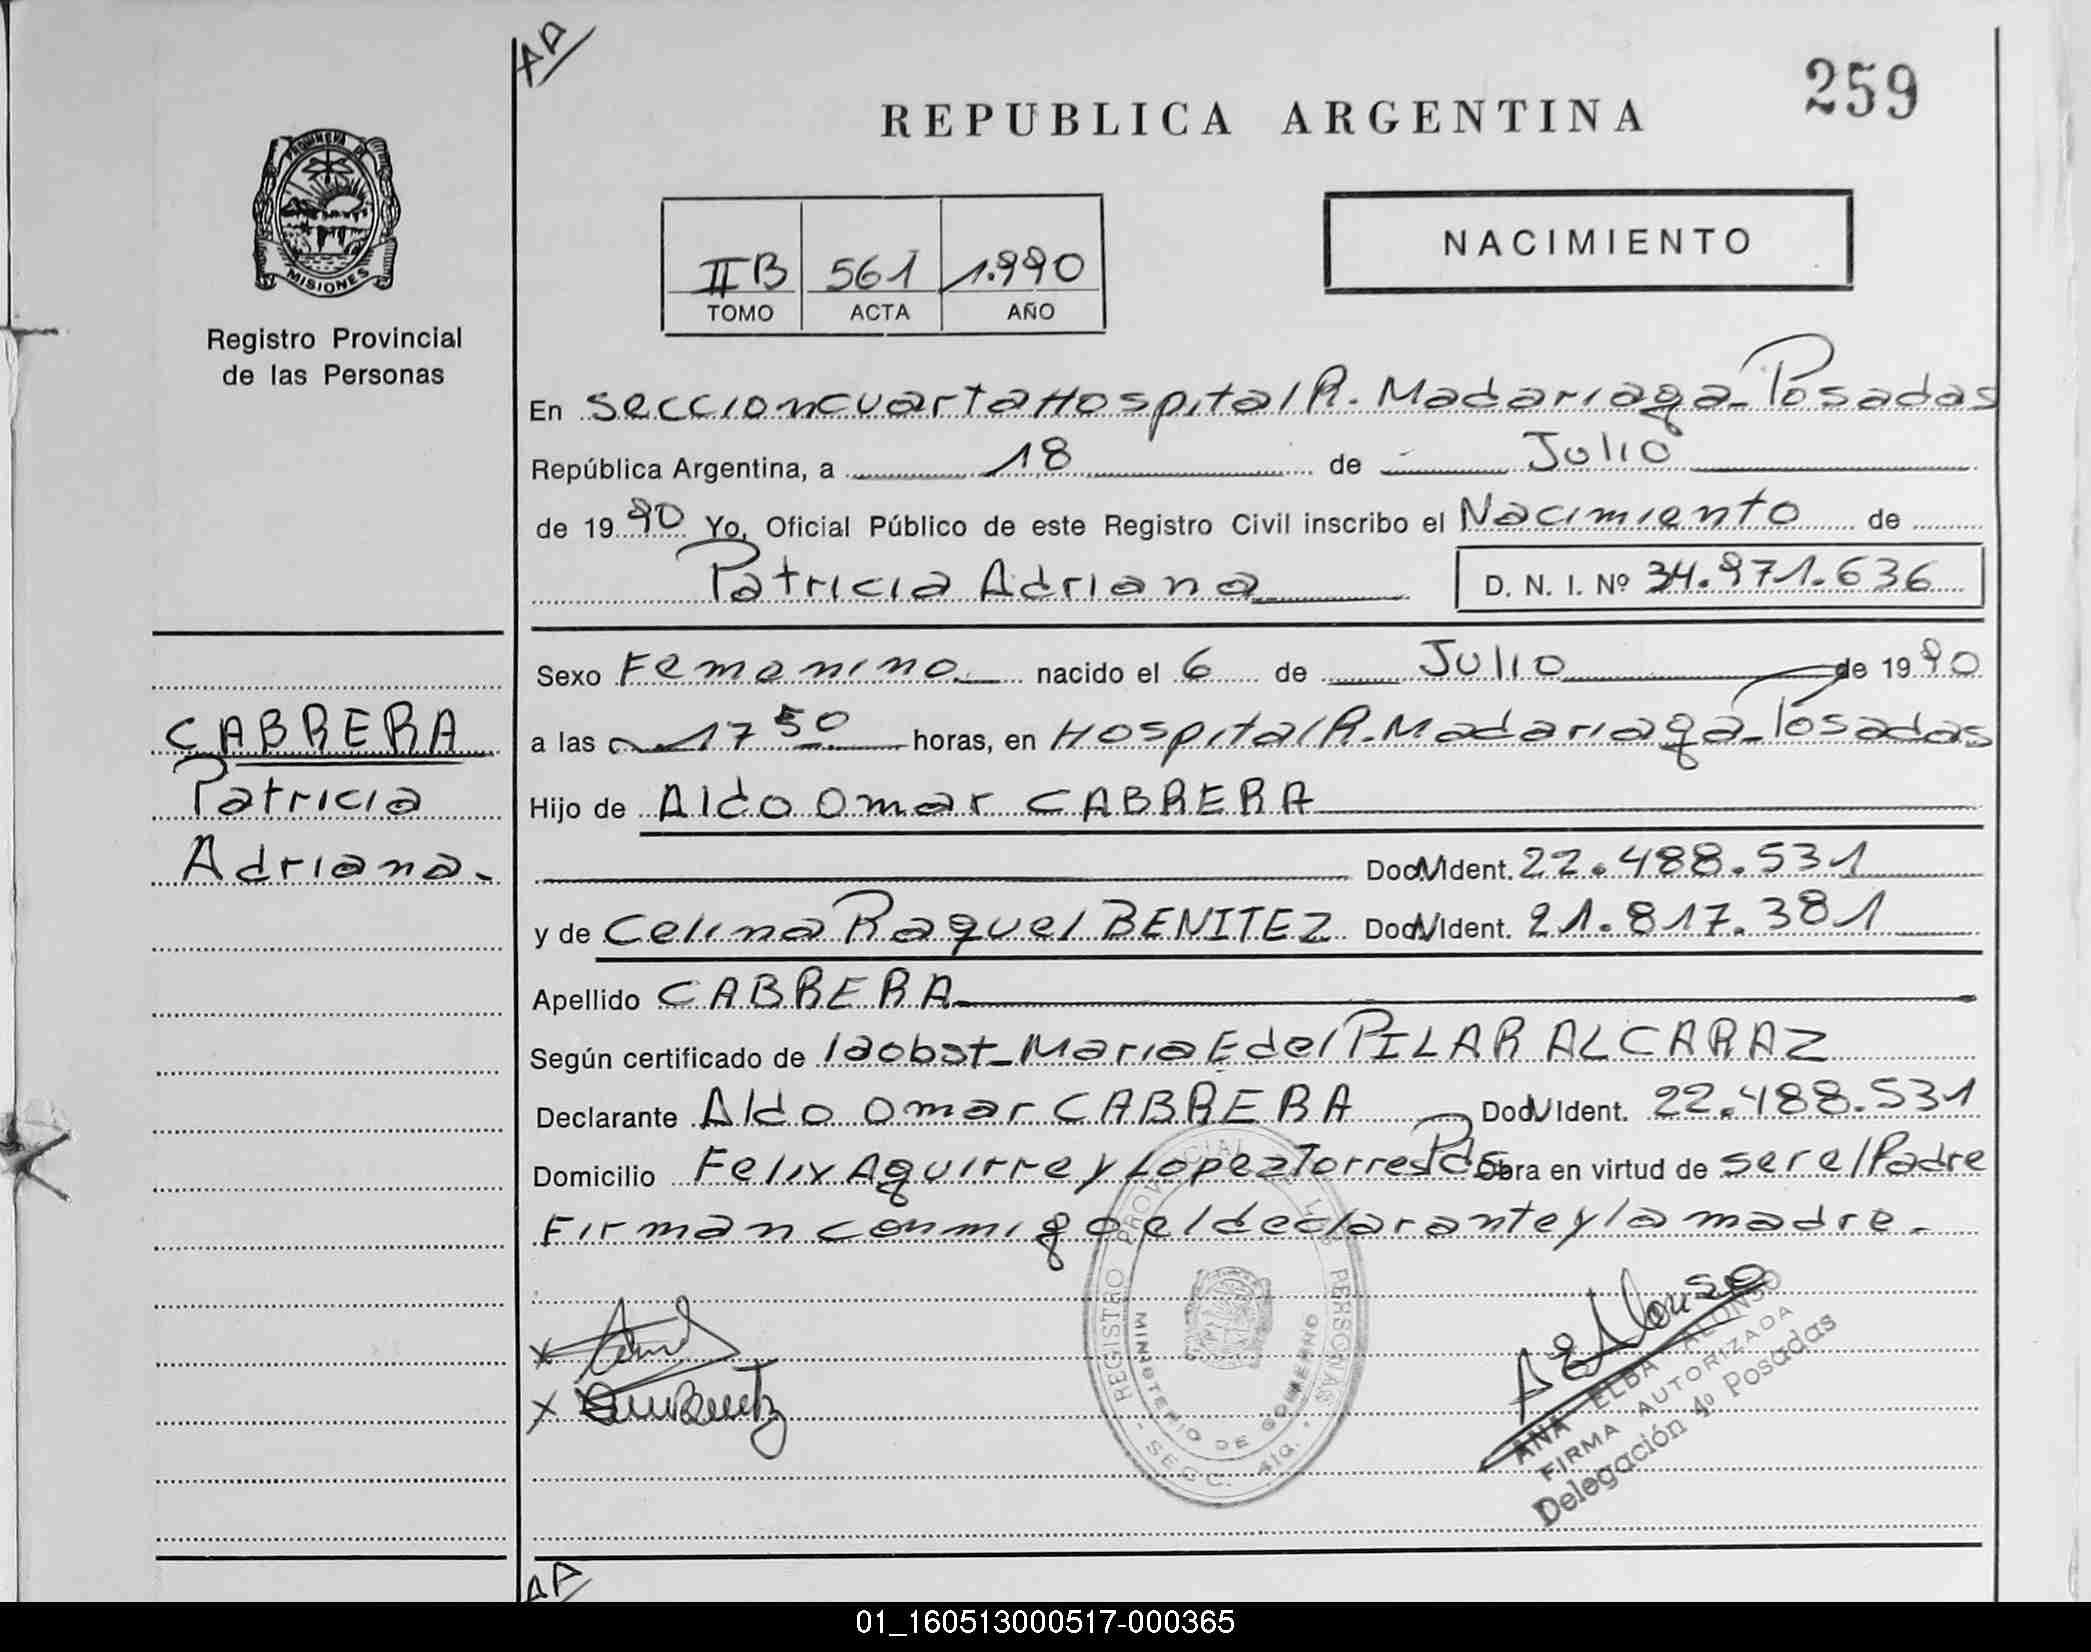 AA
259
REPUBLICA ARGENTINA
NACIMIENTO
IIB 561 1.990
TOMO ACTA AÑO
MISIONES
Registro Provincial
de las Personas
En Seccion cuarta Hospital R. Madariaga - Posadas
República Argentina, a 18 de Julio
de 1990 Yo, Oficial Público de este Registro Civil inscribo el Nacimiento de
Patricia Adriana D. N. I. Nº 34.971.636
Sexo Femenino nacido el 6 de Julio de 1990
a las 17 50 horas, en Hospital R. Madariaga - Posadas
Hijo de Aldo Omar CABRERA
Doc. N Ident. 22.488.531
y de Celina Raquel BENITEZ Doc. N Ident. 21.817.381
Apellido CABRERA
Según certificado de la obst - Maria E del PILAR ALCARAZ
Declarante Aldo Omar CABRERA Doc. N Ident. 22.488.531
Domicilio Felix Aguirre y Lopez Torres Pdas Obra en virtud de ser el Padre
Firman conmigo el declarante y la madre.
CABRERA
Patricia
Adriana.
REGISTRO PROVINCIAL DE LAS PERSONAS
MINISTERIO DE GOBIERNO
- SECC. 4ta. -
AEAlonso
ANA ELBA ALONSO
FIRMA AUTORIZADA
Delegación 4º Posadas
AA
01_160513000517-000365